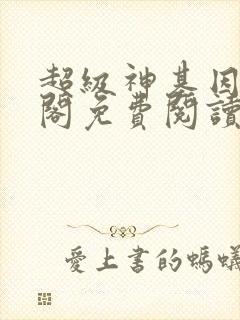 超級神基因
閣免費閱讀
愛上書的螞蟻